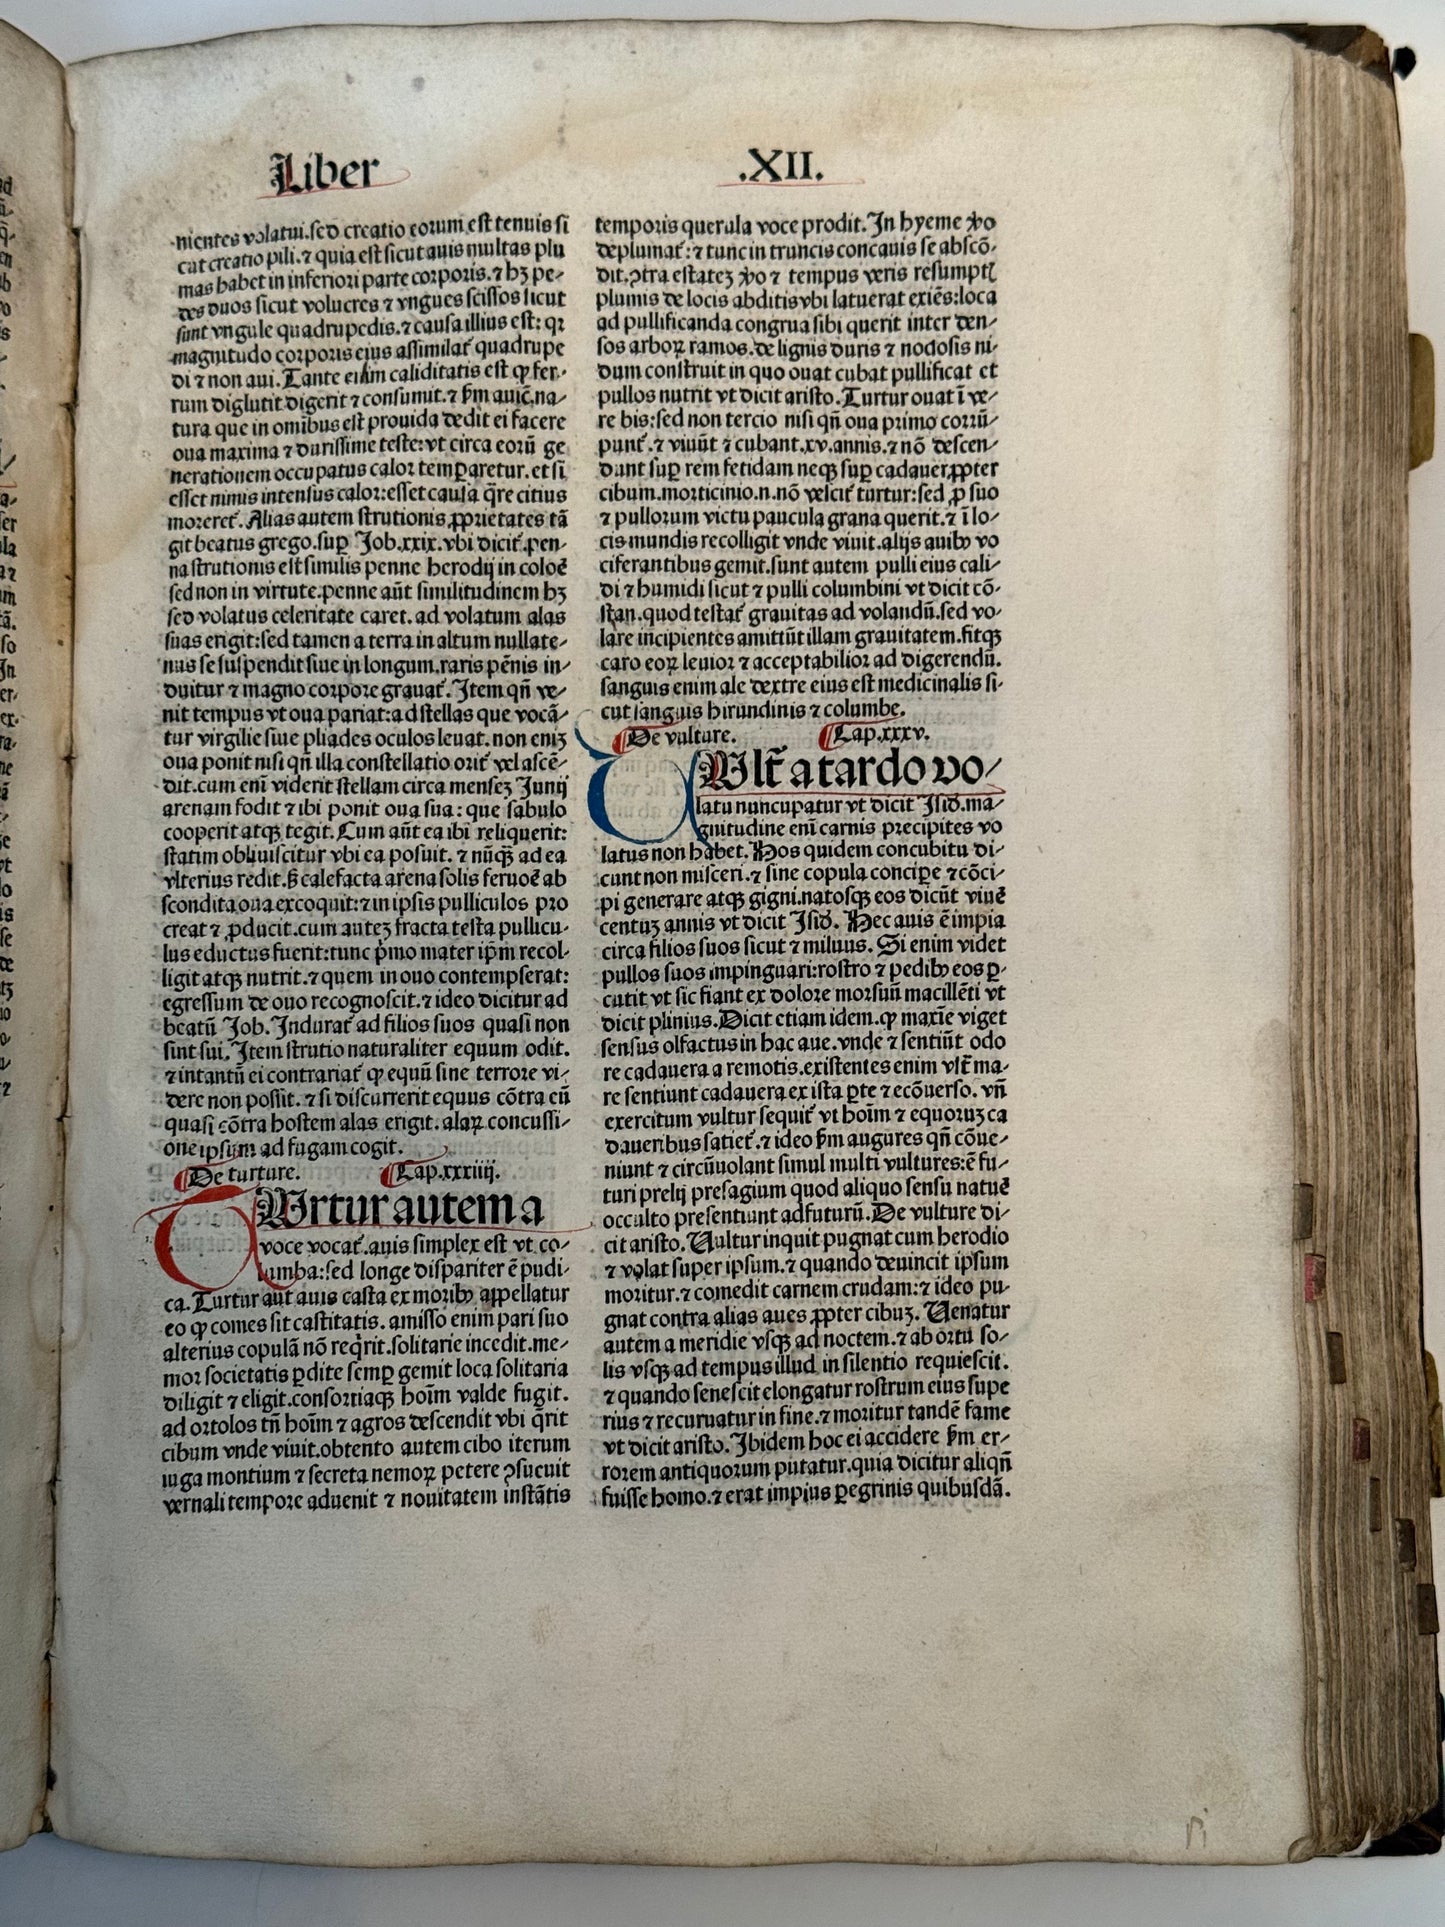 Liber
.XII.
nientes volatui.sed creatio eorum est tenuis si
cut creatio pili.⁊ quia est sicut auis multas plu
mas habet in inferiori parte corporis.⁊ hꝫ pe⸗
des duos sicut volucres ⁊ vngues scissos sicut
sunt vngule quadrupedis.⁊ causa illius est: qꝛ
magnitudo corporis eius assimilat̉ quadrupe
di ⁊ non aui. Tante enim caliditatis est ꝙ fer⸗
rum diglutit digerit ⁊ consumit.⁊ ẜm auic̄.na⸗
tura que in omibus est prouida dedit ei facere
oua maxima ⁊ durissime teste: vt circa eorū ge
nerationem occupatus calor temꝑaretur. et si
esset nimis intensus calor: esset causa q̄re citius
moreret̉. Alias autem strutionis ꝓprietates tā
git beatus grego. suꝑ Job.xxix. vbi dicit̉. pen⸗
na strutionis est similis penne herodij in coloꝛē
sed non in virtute. penne aūt similitudinem hꝫ
sed volatus celeritate caret. ad volatum alas
suas erigit: sed tamen a terra in altum nullate⸗
nus se suspendit siue in longum. raris pēnis in⸗
duitur ⁊ magno corpore grauat̉. Item qn̄ ve⸗
nit tempus vt oua pariat: ad stellas que vocā⸗
tur virgilie siue pliades oculos leuat. non eniꝫ
oua ponit nisi qn̄ illa constellatio orit̉ vel ascē⸗
dit. cum enī viderit stellam circa menseꝫ Junij
arenam fodit ⁊ ibi ponit oua sua: que sabulo
cooperit atqꝫ tegit. Cum aūt ea ibi reliquerit:
statim obliuiscitur vbi ea posuit. ⁊ nūqꝫ ad ea
vlterius redit. ẜ calefacta arena solis feruoꝛē ab
scondita oua excoquit: ⁊ in ipsis pulliculos pro
creat ⁊ ꝓducit. cum auteꝫ fracta testa pullicu⸗
lus eductus fuerit: tunc pͥmo mater ip̄m recol⸗
ligit atqꝫ nutrit. ⁊ quem in ouo contempserat:
egressum de ouo recognoscit. ⁊ ideo dicitur ad
beatū Job. Indurat̉ ad filios suos quasi non
sint sui. Item strutio naturaliter equum odit.
⁊ intantū ei contrariat̉ ꝙ equū sine terrore vi⸗
dere non possit. ⁊ si discurrerit equus cōtra eū
quasi cōtra hostem alas erigit. alaꝝ concussi⸗
one ipsum ad fugam cogit.
De turture. Cap.xxxiiij.
TUrtur autem a
voce vocat̉. auis simplex est vt co⸗
lumba: sed longe dispariter ē pudi⸗
ca. Turtur aut auis casta ex moribꝰ appellatur
eo ꝙ comes sit castitatis. amisso enim pari suo
alterius copulā nō reqͥrit. solitarie incedit. me⸗
mor societatis ꝑdite semꝑ gemit loca solitaria
diligit ⁊ eligit. consortiaqꝫ hoīm valde fugit.
ad ortolos tn̄ hoīm ⁊ agros descendit vbi qͥrit
cibum vnde viuit. obtento autem cibo iterum
iuga montium ⁊ secreta nemoꝝ petere ꝯsueuit
vernali tempore aduenit ⁊ nouitatem instātis
temporis querula voce prodit. In hyeme ꝟo
deplumat̉: ⁊ tunc in truncis concauis se abscō⸗
dit. ꝯtra estateꝫ ꝟo ⁊ tempus veris resumptꝭ
plumis de locis abditis vbi latuerat exiēs: loca
ad pullificanda congrua sibi querit inter den⸗
sos arboꝝ ramos. de lignis duris ⁊ nodosis ni⸗
dum construit in quo ouat cubat pullificat et
pullos nutrit vt dicit aristo. Turtur ouat ī ve⸗
re bis: sed non tercio nisi qn̄ oua primo corrū⸗
punt̉. ⁊ viuūt ⁊ cubant.xv.annis. ⁊ nō descen⸗
dunt suꝑ rem fetidam neqꝫ suꝑ cadauer ꝓpter
cibum. morticinio.n.nō vescit̉ turtur: sed ꝓ suo
⁊ pullorum victu paucula grana querit. ⁊ ī lo⸗
cis mundis recolligit vnde viuit. alijs auibꝰ vo
ciferantibus gemit. sunt autem pulli eius cali⸗
di ⁊ humidi sicut ⁊ pulli columbini vt dicit cō⸗
stan. quod testat̉ grauitas ad volandū. sed vo⸗
lare incipientes amittūt illam grauitatem. fitqꝫ
caro eoꝝ leuior ⁊ acceptabilior ad digerendū.
sanguis enim ale dextre eius est medicinalis si⸗
cut sanguis hirundinis ⁊ columbe.
De vulture. Cap.xxxv.
VUlt̄ a tardo vo⸗
latu nuncupatur vt dicit Isid. ma⸗
gnitudine enī carnis precipites vo
latus non habet. Hos quidem concubitu di⸗
cunt non misceri. ⁊ sine copula concipe ⁊ cōci⸗
pi generare atqꝫ gigni. natosqꝫ eos dicūt viuē
centuꝫ annis vt dicit Isid. Hec auis ē impia
circa filios suos sicut ⁊ miluus. Si enim videt
pullos suos impinguari: rostro ⁊ pedibꝰ eos ꝑ⸗
cutit vt sic fiant ex dolore morsuū macillēti vt
dicit plinius. Dicit etiam idem. ꝙ maxīe viget
sensus olfactus in hac aue. vnde ⁊ sentiūt odo
re cadauera a remotis. existentes enim vlt̄ ma⸗
re sentiunt cadauera ex ista ꝑte ⁊ ecōuerso. vn̄
exercitum vultur sequit̉ vt hoīm ⁊ equoruꝫ ca
daueribus satiet̉. ⁊ ideo ẜm augures qn̄ cōue⸗
niunt ⁊ circūuolant simul multi vultures: ē fu⸗
turi prelij presagium quod aliquo sensu natuꝛē
occulto presentiunt adfuturū. De vulture di⸗
cit aristo. Uultur inquit pugnat cum herodio
⁊ volat super ipsum. ⁊ quando deuincit ipsum
moritur. ⁊ comedit carnem crudam: ⁊ ideo pu⸗
gnat contra alias aues ꝓpter cibuꝫ. Uenatur
autem a meridie vsqꝫ ad noctem. ⁊ ab ortu so⸗
lis vsqꝫ ad tempus illud in silentio requiescit.
⁊ quando senescit elongatur rostrum eius supe
rius ⁊ recuruatur in fine. ⁊ moritur tandē fame
vt dicit aristo. Ibidem hoc ei accidere ẜm er⸗
rorem antiquorum putatur. quia dicitur aliqn̄
fuisse homo. ⁊ erat impius ꝑegrinis quibusdā.